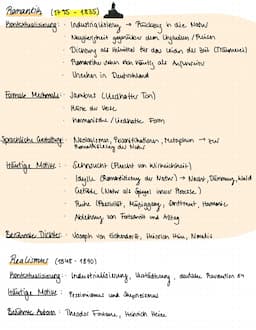 Romantik (1795 - 1835)
Kontextualisierung: - Industrialisierung → Rückzug in die Natur
- Neugierigkeit gegenüber dem Unbekannten / Reisen
- Dichtung als Heilmittel für das Leiden der Zeit
- Romantiker sahen sich häufig als Außenseiter
- Unruhen in Deutschland
Formale Merkmale: - Jambus (liedhafter Ton)
- Reime der Verse
- harmonische / liedhafte Form
Sprachliche Gestaltung: - Neologismen, Personifikationen, Metaphern → zur
Romantisierung der Natur
Häufige Motive: - Sehnsucht (Flucht vor Wirklichkeit)
- Idylle (Romantisierung der Natur) → Nacht, Dämmerung, Wald
- Gefühle (Natur als Spiegel innerer Prozesse)
- Ruhe, Müßiggang, Harmonie
- Ablehnung von Fortschritt und Alltag
Berühmte Dichter: - Joseph von Eichendorff, Heinrich Heine, Novalis
Realismus (1848 - 1890)
Kontextualisierung: - Industrialisierung, Verstädterung, Revolution
Häufige Motive: - Pessimismus und
Berühmte Autoren: - Theodor Fontane, Heinrich Heine